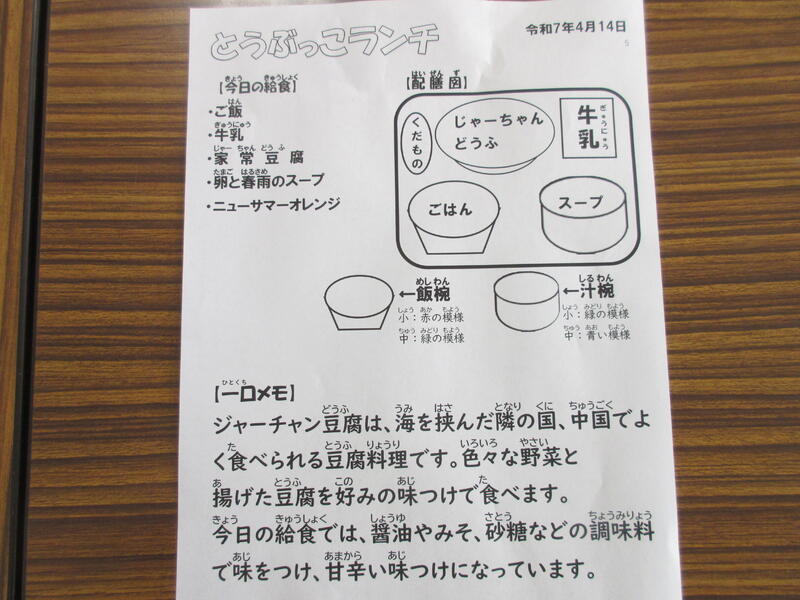 とうぶっこランチ
令和7年4月14日
5
【今日の給食】
・ご飯
・牛乳
・家常豆腐
・卵と春雨のスープ
・ニューサマーオレンジ
【配膳図】
くだもの
じゃーちゃん
どうふ
牛乳
ごはん
スープ
←飯椀
小:赤の模様
中:緑の模様
←汁椀
小:緑の模様
中:青い模様
【一口メモ】
ジャーチャン豆腐は、海を挟んだ隣の国、中国でよ
く食べられる豆腐料理です。色々な野菜と
揚げた豆腐を好みの味つけで食べます。
今日の給食では、醤油やみそ、砂糖などの調味料
で味をつけ、甘辛い味つけになっています。